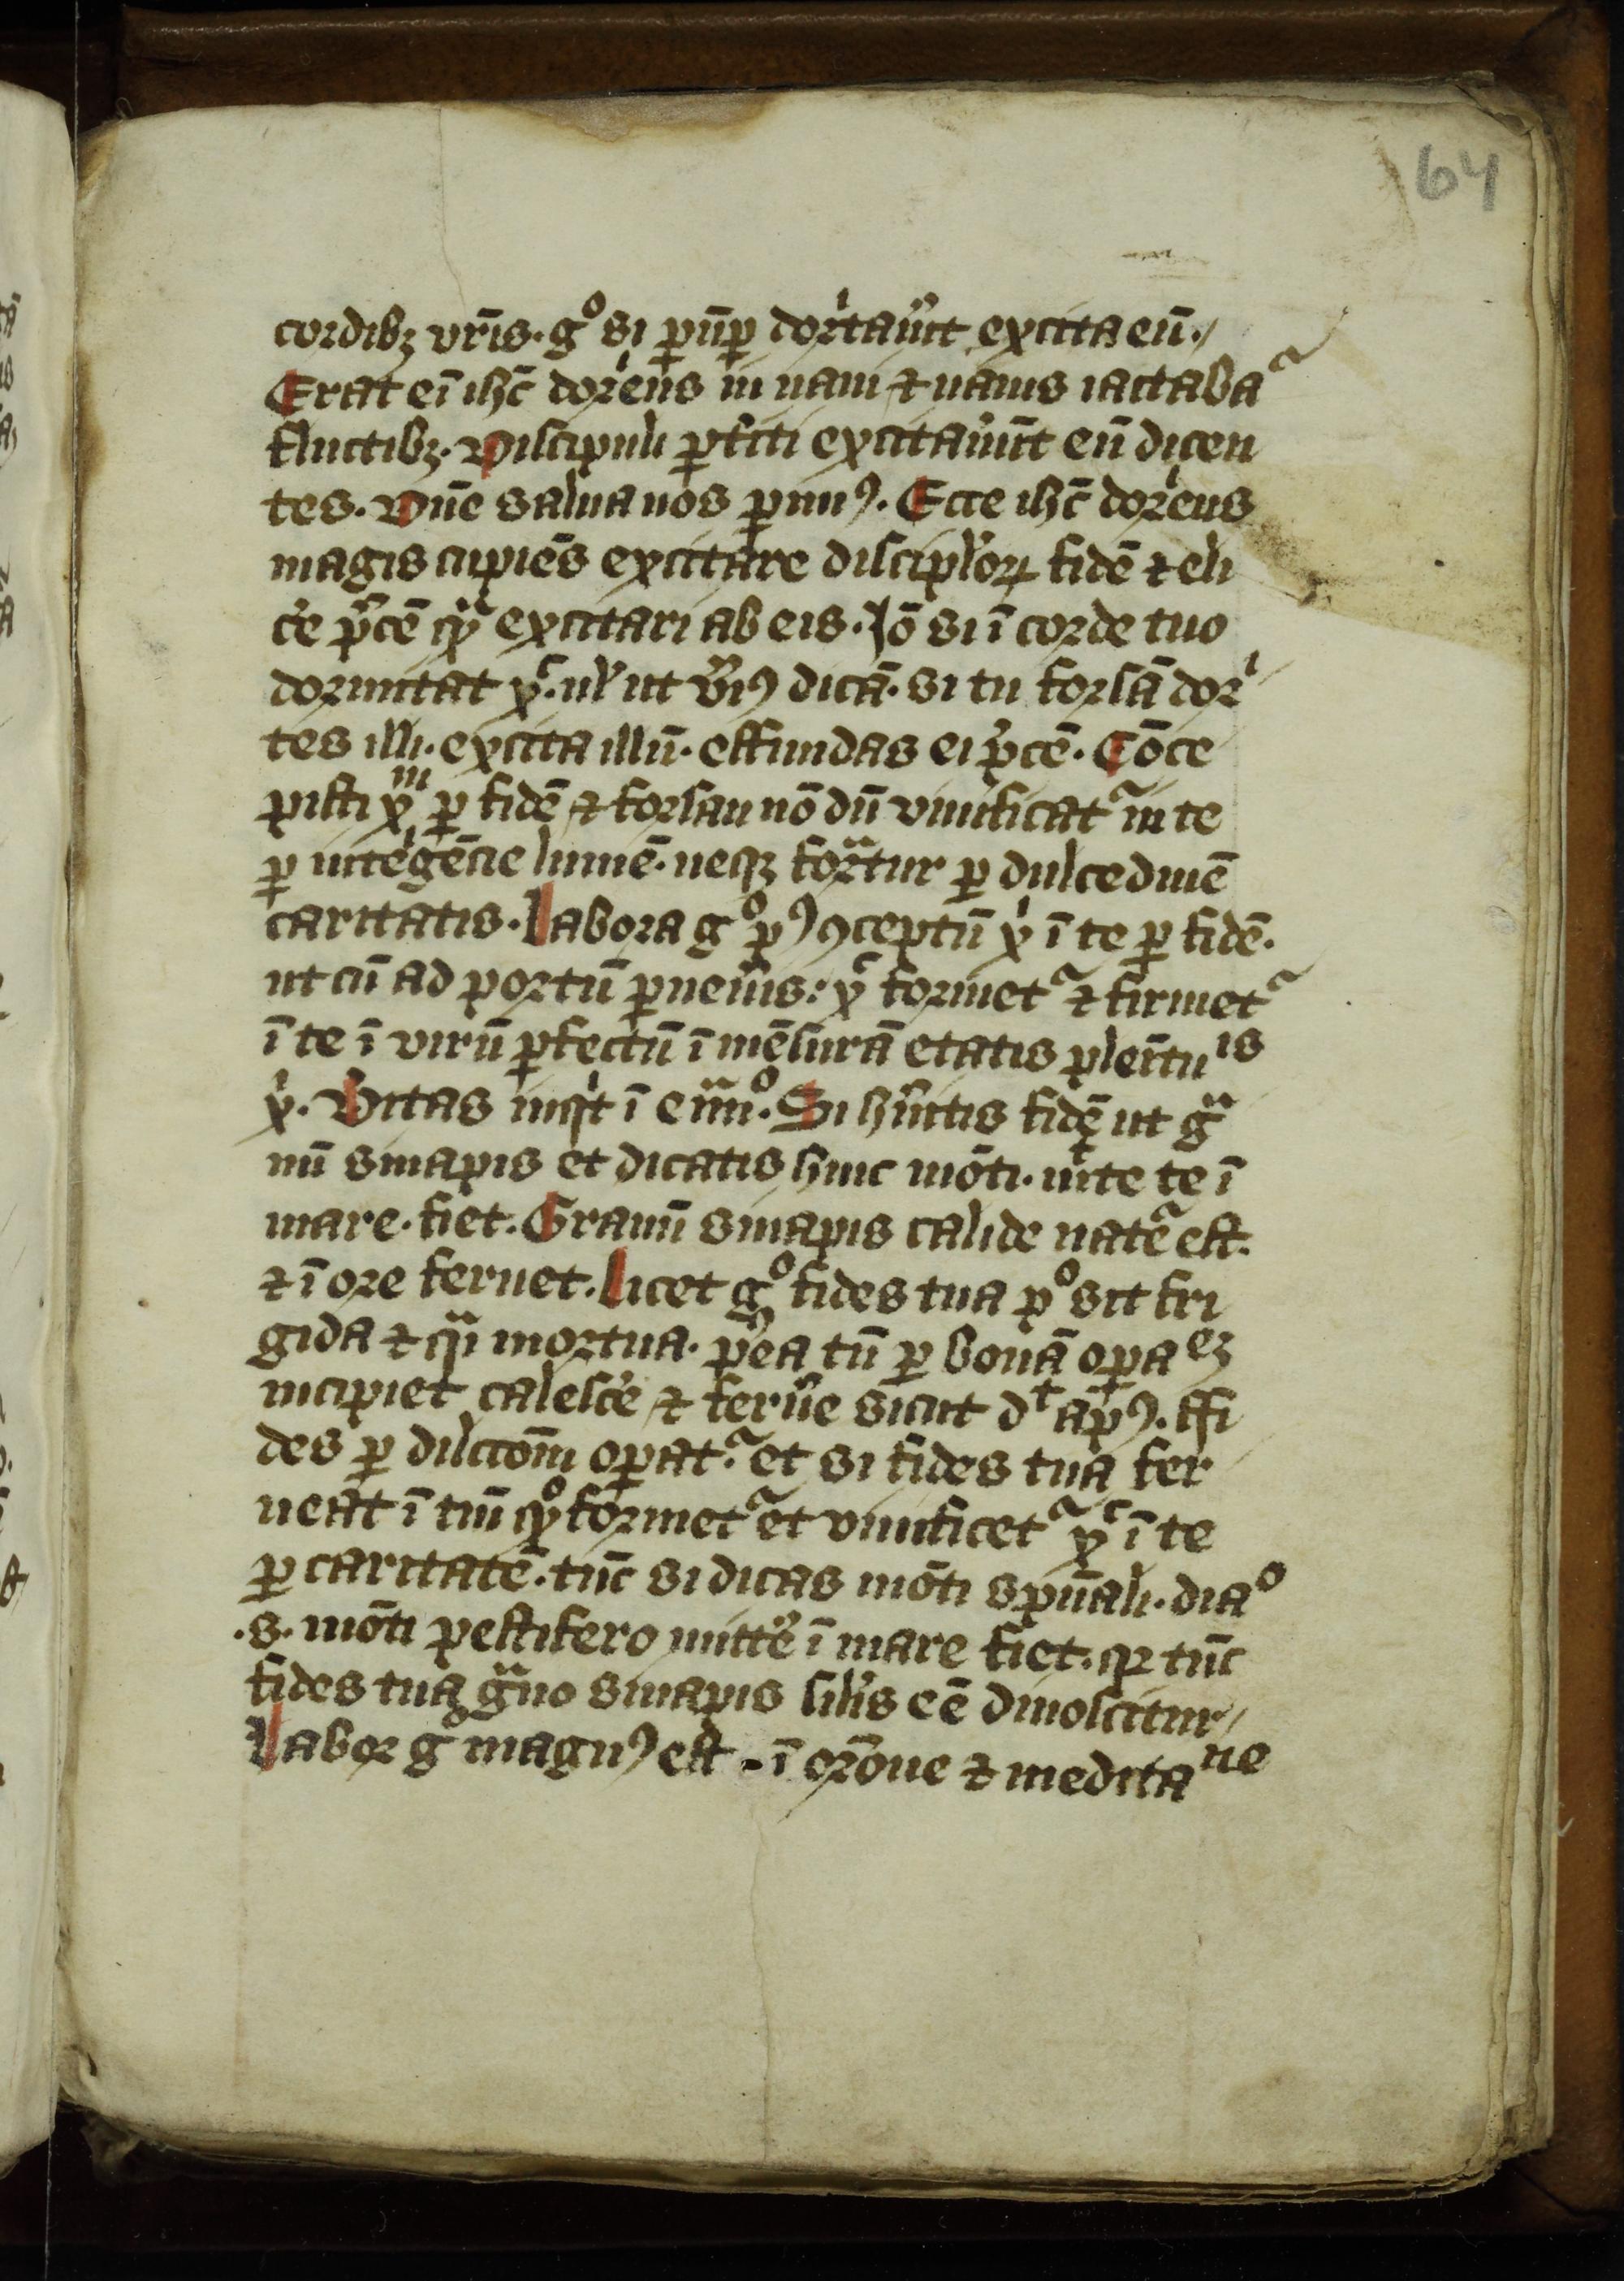 64
cordibꝫ vr̄is. gͦ si ꝑūꝑ dorͥtau̓it excita eū.
Erat ei̅ ihc̄ dorͥens in naui ⁊ nauis iactabaᷓ
fluctibꝫ. Discipuli ꝑfcti excitau̓ūt eū dicen
tes. Dn̄e salua nos ꝑimꝰ. Ecce ihc̄ dorͥens
magis cupiēs excitare discipl̓oꝝ fidē ⁊ eli
c̓e p̓cē qᷓ excitari ab eis. Iō si ī corde tuo
dormitat xᷓ. ul̓ ut v̓iꝰ dicā. si tu forsā dorͥ
tes illi. excita illū. effundas ei p̓cē. Cōce
pisti xᵐ ꝑ fidē ⁊ forsan nō dū viuificatᷓ in te
ꝑ intēgēcie lumē. neqꝫ forᷓtur ꝑ dulcedinē
caritatis. Labora gͦ pꝰ ꝯceptū xͥ ī te ꝑ fidē.
ut cū ad portū ꝑuen̓is: xᷓ formetᷓ ⁊ firmetᷓ
ī te ī virū ꝑfectū ī mēsurā etatis plēitu is
xͥ. Vitas inqͥt ī euᷓnͦ. Si hu̓itis fidē ut gᷓ
nū sinapis et dicatis huic mōti. mͥte te ī
mare. fiet. Granū sinapis calide natᷓe est.
⁊ ī ore feruet. Licet gͦ fides tua pͦ sit fri
gida ⁊ qᷓi mortua. p̓ea tn̄ ꝑ bonā oꝑa eꝫ
incipiet calesc̓e ⁊ feru̓e sicut dᵗ apꝰ. ffi
des ꝑ dilctōm oꝑatᷓ. et si fides tua fer
ueat ī tm̄ qͦ formetᷓ et viuificetᷓ xᷓ ī te
ꝑ caritatē. tūc si dicas mōti spūali. diaͦ
.s. mōti pestifero mitt̓e ī mare fiet. qꝛ tūc
fides tua gᷓno sinapis sil̓is eē dinoscitur
Labor gͦ magnꝰ est . ī or̄one ⁊ medita ne